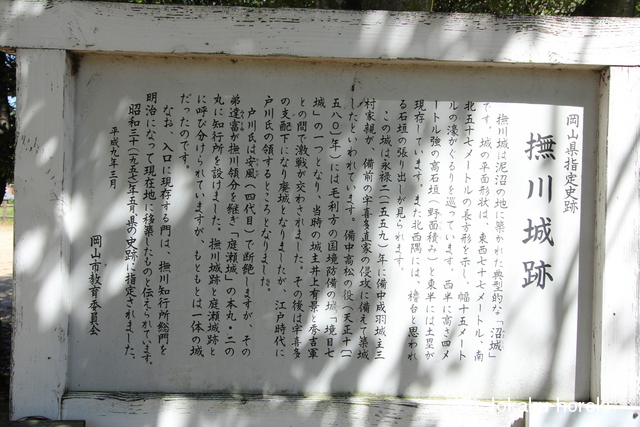 岡山県指定史跡
撫川城跡
撫川城は泥沼の地に築かれた典型的な「沼城」
です。城の平面形状は、東西七十七メートル、南
北五十七メートルの長方形を示し、幅十五メート
ルの濠がぐるりを巡っています。西半に高さ四メ
ートル強の高石垣（野面積み）と東半には土塁が
現存しています。また北西隅には、櫓台と思われ
る石垣の張り出しが見られます。
この城は永禄二（一五五九）年に備中成羽城主三
村家親が、備前の宇喜多直家の侵攻に備えて築城
したといわれています。備中高松の役（天正十（一
五八〇）年）には毛利方の国境防備の城「境目七
城」の一つとなり、当時の城主井上有景と秀吉軍
との間で激戦が交わされました。その後は宇喜多
の支配下になり廃城となりましたが、江戸時代に
戸川氏の領するところとなりました。
戸川氏は安風（四代目）で断絶しますが、その
弟達富が撫川領分を継ぎ「庭瀬城」の本丸・二の
丸に知行所を設けました。撫川城跡と庭瀬城跡と
に呼び分けられていますが、もともとは一体の城
だったのです。
なお、入口に現存する門は、撫川知行所総門を
明治になって現在地に移築したものと伝えられています。
昭和三十二（一九五七）年五月県の史跡に指定されました。
平成九年三月
岡山市教育委員会